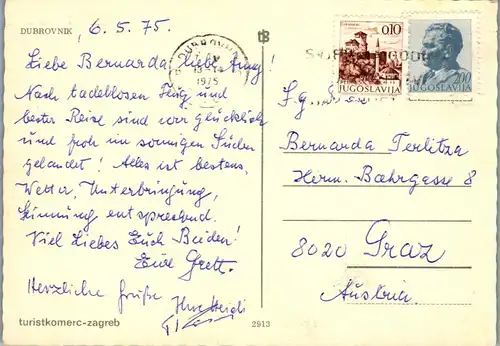 DUBROVNIK
6.5.75.
Liebe Bernarda, liebe
Nach tadellosem Flug und
bester Reise sind wir glücklich
und froh im sonnigen Süden
gelandet! Alles ist bestens,
Wetter, Unterbringung,
Stimmung entsprechend.
Viel Liebes Euch Beiden!
Eure Grett.
Herzliche Grüße
turistkomerc-zagreb
2913
DUBROVNIK
1975
0,10
JUGOSLAVIJA
2,00
JUGOSLAVIJA
Bernarda Terlitza
Herm. Bahrgasse 8
8020 Graz
Austria